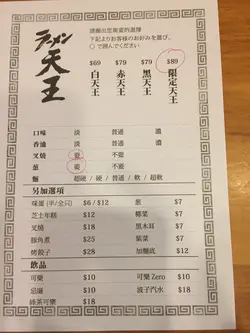 ラーメン
天王
請圈出您需要的選擇
下記よりお客様のお好みを選び、
○で囲んでください
$69 $79 $79 $89
白天王 赤天王 黑天王 限定天王
口味 淡 普通 濃
香油 淡 普通 濃
叉燒 要 不要
蔥 要 不要
麵 超硬 / 硬 / 普通 / 軟 / 超軟
另加選項
味蛋 (半/全只) $6 / $12
蔥 $7
芝士年糕 $12
椰菜 $7
叉燒 $18
黑木耳 $7
豚角煮 $25
紫菜 $7
烤餃子 $28
加麵底 $12
飲品
可樂 $10
可樂 Zero $10
忌廉 $10
波子汽水 $18
綠茶可樂 $18